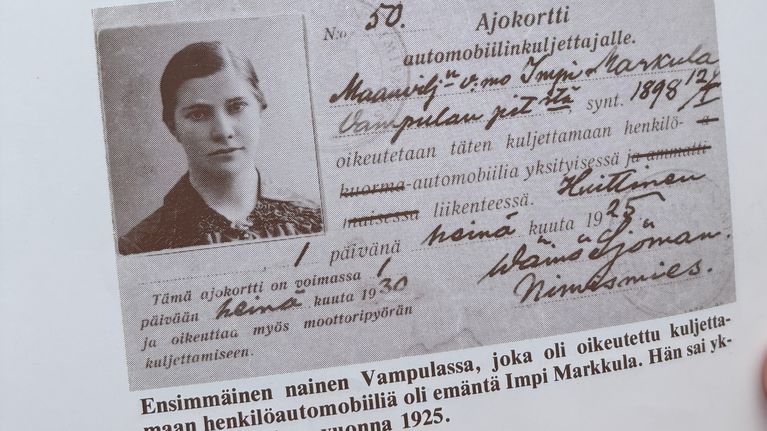 N:o 50.
Ajokortti
automobiilinkuljettajalle.
Maanvilj:n v:mo Impi Markula
Vampulan pit:stä, synt. 1898 12/I
oikeutetaan täten kuljettamaan henkilö-
kuorma-automobiilia yksityisessä ja ammatti-
maisessa liikenteessä. Huittinen
1 päivänä heinä kuuta 1925
Wäinö Sjöman.
Nimismies.
Tämä ajokortti on voimassa 1
päivään heinä kuuta 1930
ja oikeuttaa myös moottoripyörän
kuljettamiseen.
Ensimmäinen nainen Vampulassa, joka oli oikeutettu kuljetta-
maan henkilöautomobiiliä oli emäntä Impi Markkula. Hän sai yk-
vuonna 1925.